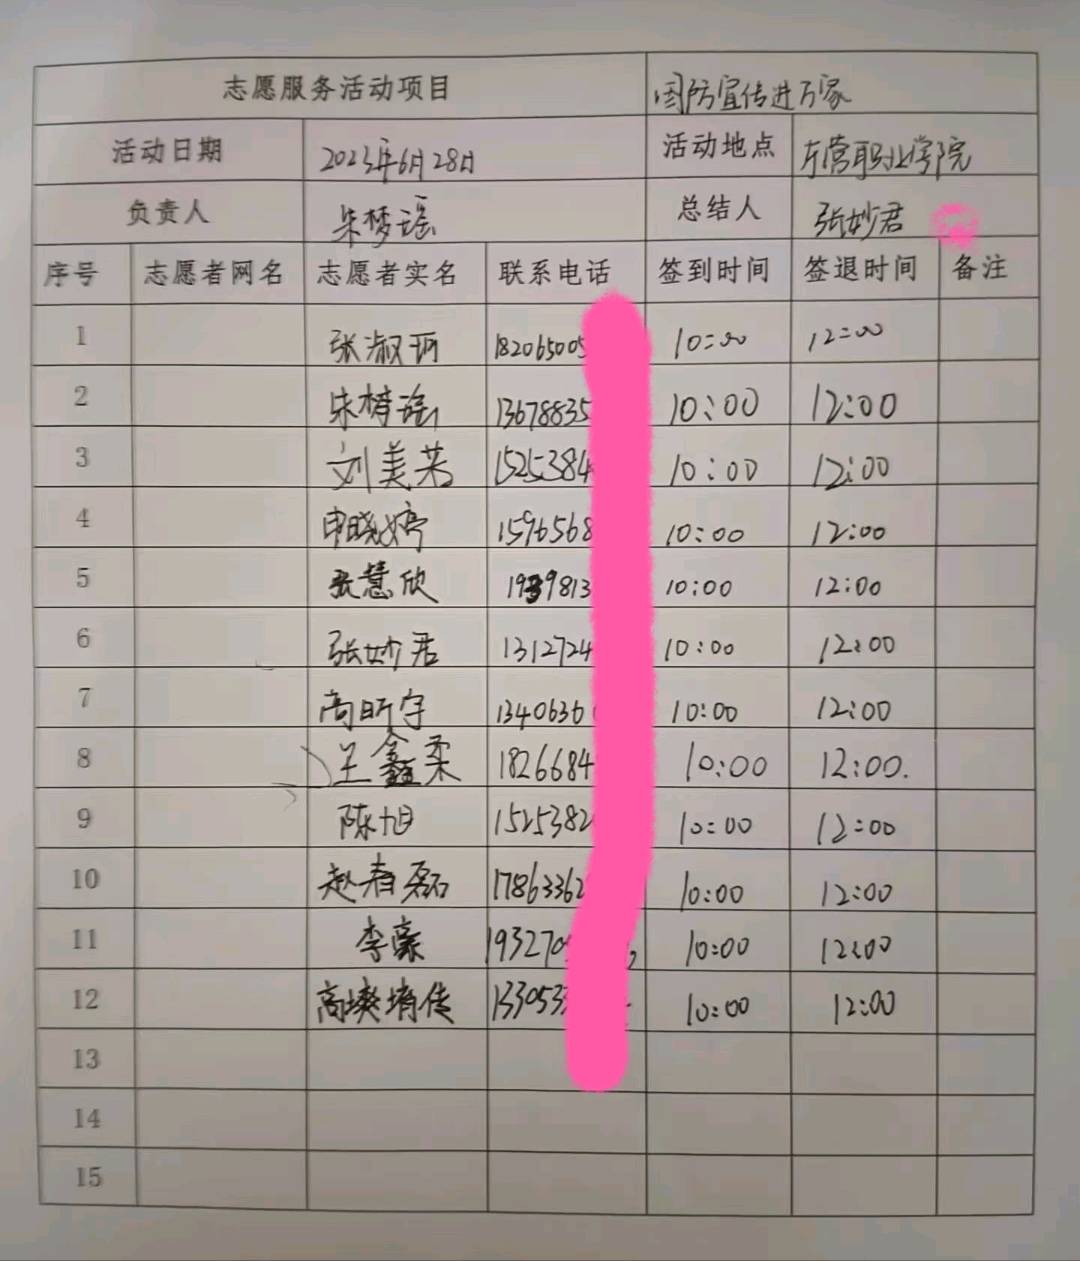 志愿服务活动项目 国防宣传进万家
活动日期 2023年6月28日 活动地点 东营职业学院
负责人 朱梦瑶 总结人 张妙君
序号 志愿者网名 志愿者实名 联系电话 签到时间 签退时间 备注
1 张淑珂 18206500 10:00 12:00
2 朱梦瑶 13678835 10:00 12:00
3 刘美若 1525384 10:00 12:00
4 申晓婷 1596568 10:00 12:00
5 张慧欣 1939813 10:00 12:00
6 张妙君 1312724 10:00 12:00
7 高昕宇 1340636 10:00 12:00
8 王鑫柔 1826684 10:00 12:00.
9 陈旭 1525382 10:00 12:00
10 赵春磊 17863362 10:00 12:00
11 李豪 193270 10:00 12:00
12 133053 10:00 12:00
13
14
15